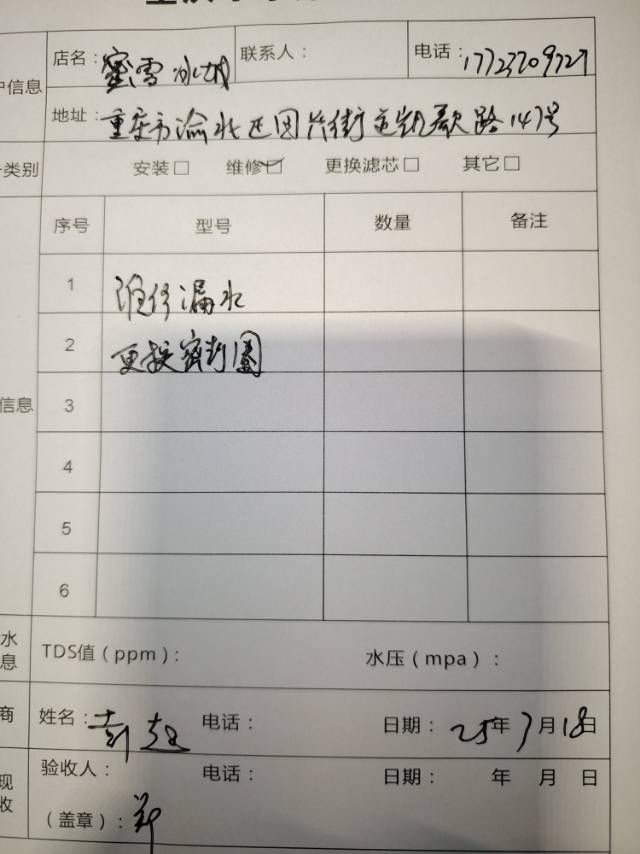 店名：蜜雪冰城 联系人： 电话：17723209727
户信息
地址：重庆市渝北区回兴街道凯歌路147号
类别 安装□ 维修☑ 更换滤芯□ 其它□
序号 型号 数量 备注
1 维修漏水
2 更换密封圈
信息 3
4
5
6
水 息 TDS值（ppm）： 水压（mpa）：
商 姓名：彭超 电话： 日期：25年7月18日
现 收 验收人： 电话： 日期： 年 月 日
（盖章）：郑